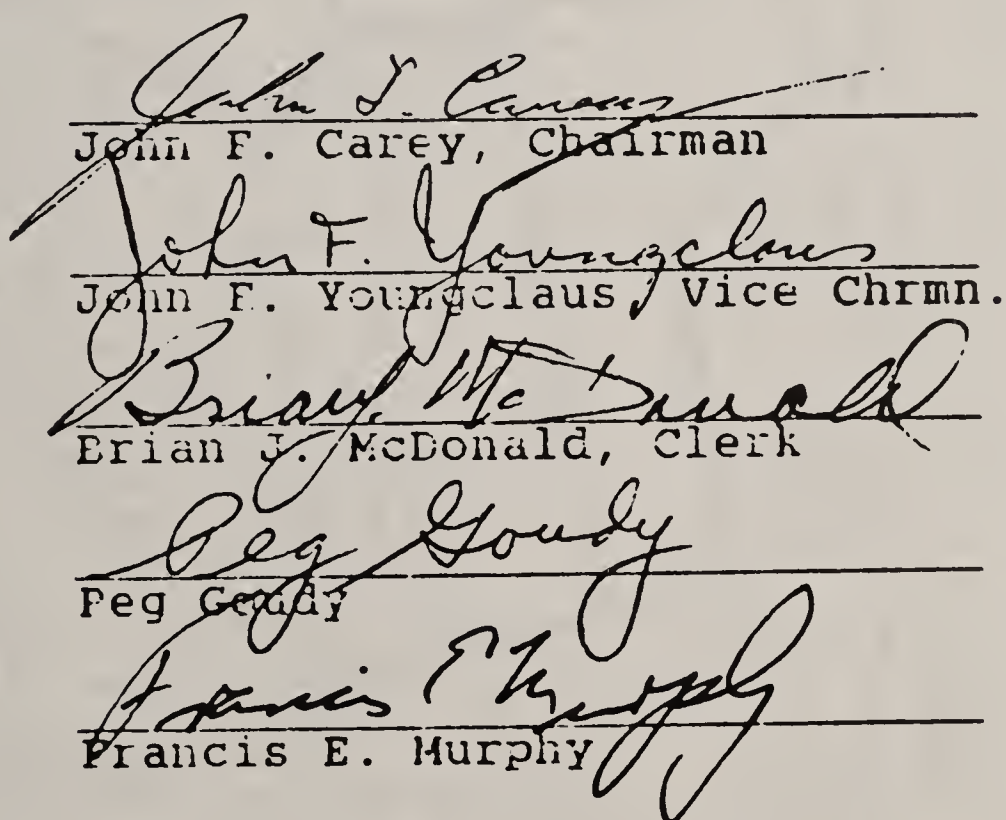 John F. Carey
John F. Carey, Chairman
John F. Youngclaus
John F. Youngclaus, Vice Chrmn.
Brian J. McDonald
Brian J. McDonald, Clerk
Peg Goudy
Peg Goudy
Francis E Murphy
Francis E. Murphy